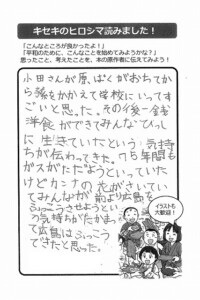 キセキのヒロシマ読みました！
「こんなところが良かったよ！」
「平和のために、こんなことを始めてみようかな？」
思ったこと、考えたことを、本の原作者に伝えてみよう！
小田さんが原ばくがおちてから
をかかえて学校にいってす
ごいと思った。その後一
洋食ができてみんなひっし
に生きていたという気持
ちが伝わってきた。75年間も
がスがただようといっていた
けどカンナの花がさいてい
てみんなが前より広島を
ふっこうさせようとい
う気持ちがたかまっ
て広島はふっこう
できたと思った。
イラストも
大歓迎！